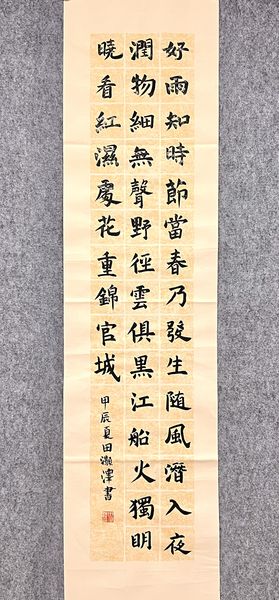 好雨知時節當春乃發生随風潛入夜
潤物細無聲野徑雲俱黑江船火獨明
曉看紅濕處花重錦官城
甲辰夏田瀜澤書